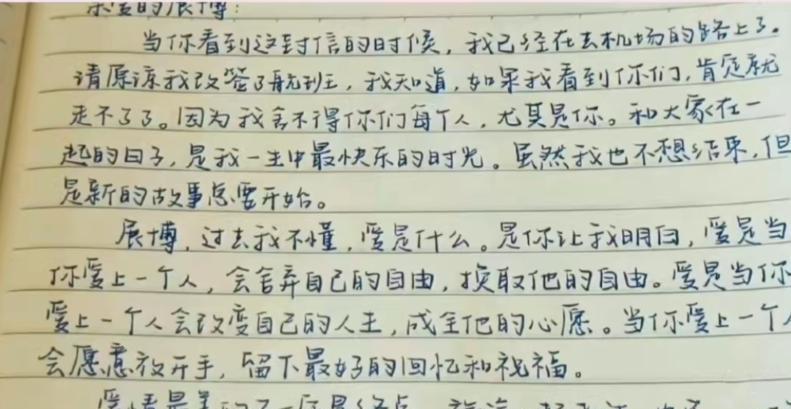 亲爱的展博:
当你看到这封信的时候,我已经在去机场的路上了。
请原谅我改签了航班,我知道,如果我看到你们,肯定就
走不了了。因为我舍不得你们每个人,尤其是你。和大家在一
起的日子,是我一生中最快乐的时光。虽然我也不想结束,但
是新的故事总要开始。
展博,过去我不懂,爱是什么。是你让我明白,爱是当
你爱上一个人,会舍弃自己的自由,换取他的自由。爱是当你
爱上一个人会改变自己的人生,成全他的心愿。当你爱上一个人
会愿意放开手,留下最好的回忆和祝福。